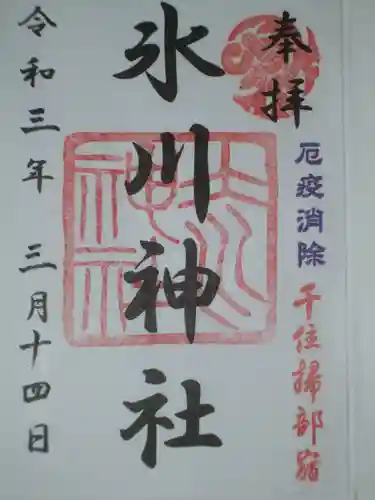 奉拝
厄疫消除
千住掃部宿
氷川神社
令和三年 三月十四日